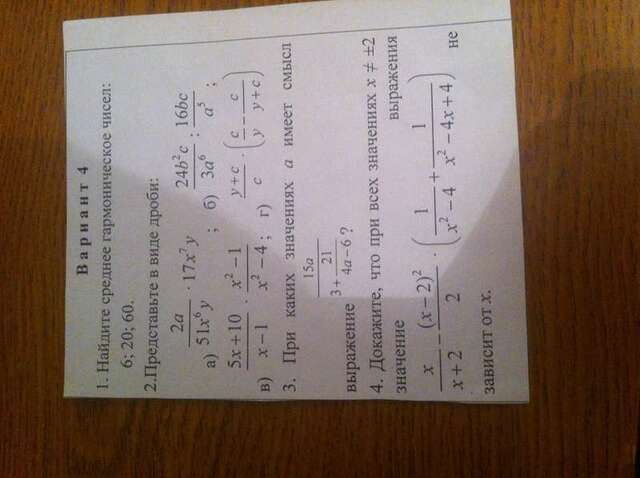 Вариант 4
1. Найдите среднее гармоническое чисел:
6; 20; 60.
2.Представьте в виде дроби:
а) \frac{2a}{51x^6y} · 17x^7y ; б) \frac{24b^2c}{3a^6} : \frac{16bc}{a^5} ;
в) \frac{5x+10}{x-1} · \frac{x^2-1}{x^2-4} ; г) \frac{y+c}{c} · \left(\frac{c}{y} - \frac{c}{y+c}\right)
3. При каких значениях a имеет смысл
выражение \frac{15a}{3+\frac{21}{4a-6}} ?
4. Докажите, что при всех значениях x ≠ ±2
значение выражения
\frac{x}{x+2} - \frac{(x-2)^2}{2} · \left(\frac{1}{x^2-4} + \frac{1}{x^2-4x+4}\right) не
зависит от x.